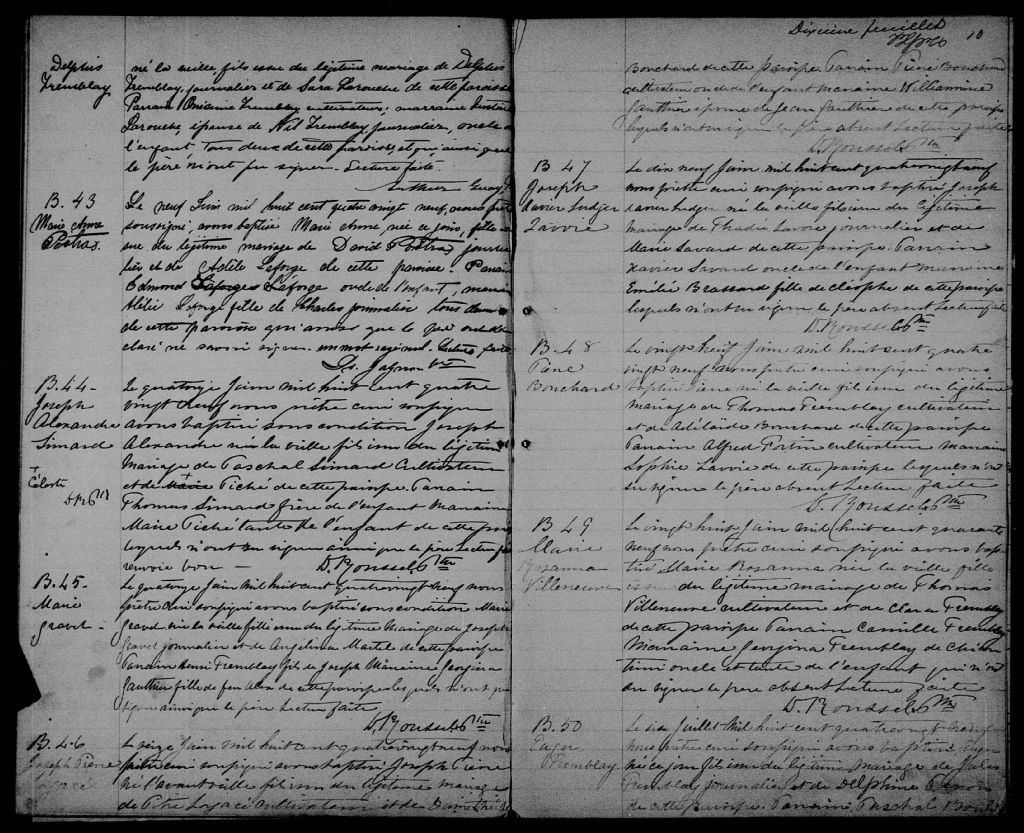 Delphis
Tremblay
né la veille fils issu du légitime mariage de Delphis
Tremblay, journalier et de Sara Larouche de cette paroisse
Parrain Onésime Tremblay cultivateur; marraine
Larouche, épouse de Nil Tremblay, journalier, oncle
l'enfant tous deux de cette paroisse, et qui ainsi que
le père n'ont pu signer. Lecture faite.
Arthur Guay
B. 43
Marie Anne
Potras
Le neuf Juin mil huit cent quatre vingt neuf, nous
soussigné, avons baptisé Marie Anne née ce jour, fille
sue du légitime mariage de David Potra journa
lier et de Adèle Laforge de cette paroisse. Parrain
Edmond Laforge oncle de l'enfant, marraine
Adélie Laforge fille de Charles journalier tous deux
de cette paroisse qui ainsi que le père ont dé
claré ne savoir signer. un mot rayé nul. Lecture faite
B. 44
Joseph
Alexandre
Simard
+
Céleste
Le quatorze Juin mil huit cent quatre
vingt neuf nous prêtre curé soussigné
avons baptisé sous condition Joseph
Alexandre né la veille fils issu du légitime
Mariage de Paschal Simard Cultivateur
et de Marie Piché de cette paroisse. Parrain
Thomas Simard frère de l'enfant Marraine
Marie Piché tante de l'enfant de cette paroisse
lesquels n'ont su signer ainsi que le père Lecture
renvoie bon — D. Roussel Ptre
B. 45
Marie
gravel
Le quatorze Juin mil huit cent quatre vingt neuf nous
prêtre curé soussigné avons baptisé sous condition Marie
gravel née la veille fille issue du légitime Mariage de Joseph
gravel journalier et de Angelina Martel de cette paroisse
Parrain Henri Tremblay fils de Joseph Marraine Georgina
Gauthier fille de feu de cette paroisse lesquels n'ont pu
signer ainsi que le père Lecture faite
D. Roussel Ptre
B. 46
Joseph Pierre
Le seize Juin mil huit cent quatre vingt neuf nous
prêtre curé soussigné avons baptisé Joseph Pierre
né l'avant veille fils issu du légitime mariage
de Pitre cultivateur et de
Dixième feuillet
10
Bouchard de cette paroisse. Parrain Pierre Bouchard
cultivateur oncle de l'enfant Marraine Williamine
Gauthier épouse de Jean Gauthier de cette paroisse
lesquels n'ont su signer le père absent Lecture faite
D. Roussel Ptre
B 47
Joseph
Xavier Ludger
Lavoie
Le dix neuf Juin mil huit cent quatre vingt neuf
nous prêtre curé soussigné avons baptisé Joseph
Xavier Ludger né la veille fils issu du légitime
mariage de Thadé Lavoie journalier et de
Marie Savard de cette paroisse. Parrain
Xavier Savard oncle de l'enfant Marraine
Emélie Brassard fille de cléophe de cette paroisse
lesquels n'ont su signer le père absent Lecture faite
D. Roussel Ptre
B. 48
Pierre
Bouchard
Le vingt Juin mil huit cent quatre
vingt neuf nous prêtre curé soussigné avons
baptisé Pierre né la veille fils issu du légitime
mariage de Thomas Tremblay cultivateur
et de Adélaïde Bouchard de cette paroisse
Parrain Alfred Fortin cultivateur Marraine
Sophie Lavoie de cette paroisse lesquels n'ont
su signer le père absent Lecture faite
D. Roussel Ptre
B 49
Marie
Rosanna
Villeneuve
Le vingt huit Juin mil huit cent quarante
neuf nous prêtre curé soussigné avons bap
tisé Marie Rosanna née la veille fille
issue du légitime mariage de Thomas
Villeneuve cultivateur et de Clara Tremblay
de cette paroisse Parrain Camille Tremblay
Marraine Georgina Tremblay de
oncle et tante de l'enfant qui n'ont
su signer le père absent Lecture faite
D. Roussel Ptre
B. 50
Tremblay
Le six Juillet mil huit cent quatre vingt neuf
nous prêtre curé soussigné avons baptisé
né ce jour fils issu du légitime mariage de Jules
Tremblay journalier et de Delphine
de cette paroisse. Parrain Paschal